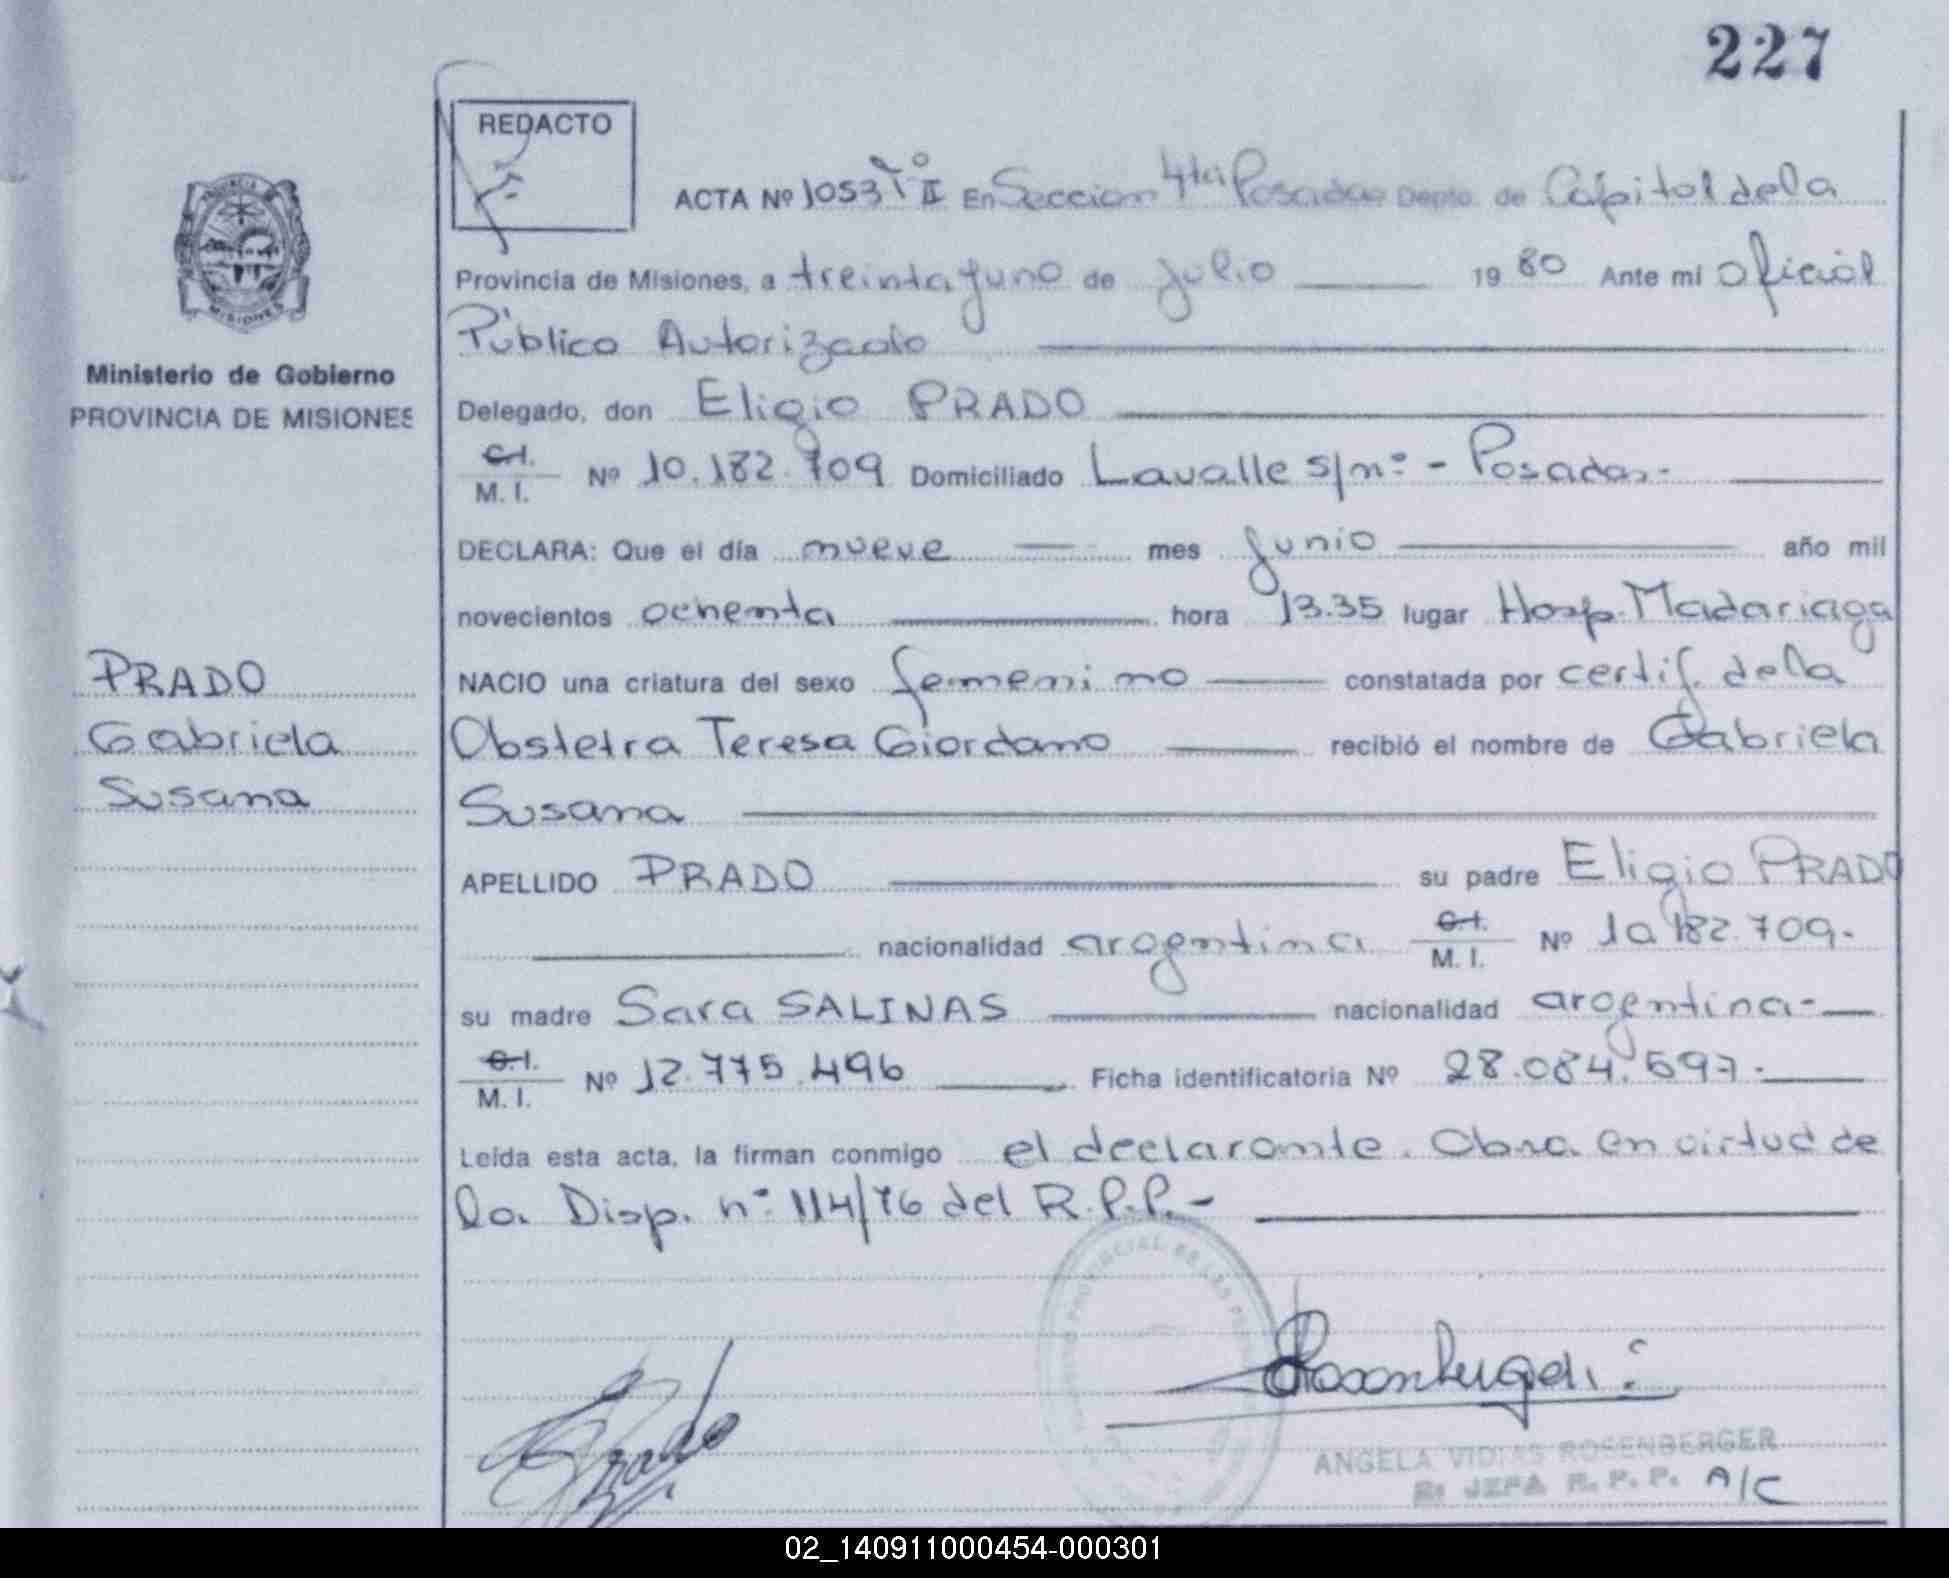 227
REDACTO
ACTA Nº 1053 Tº II En Seccion 4ta Posadas Depto. de Capital de la
Provincia de Misiones, a treinta y uno de julio 19 80 Ante mi Oficial
Público Autorizado
Ministerio de Gobierno
PROVINCIA DE MISIONES
Delegado, don Eligio PRADO
C.I. M. I. Nº 10.182.709 Domiciliado Lavalle s/nº - Posadas.-
DECLARA: Que el día nueve mes junio año mil
novecientos ochenta hora 13.35 lugar Hosp. Madariaga
PRADO
Gabriela
Susana
NACIO una criatura del sexo femenino constatada por certif. de la
Obstetra Teresa Giordano recibió el nombre de Gabriela
Susana
APELLIDO PRADO su padre Eligio PRADO
nacionalidad argentina C.I. M. I. Nº 10.182.709.
su madre Sara SALINAS nacionalidad argentina-
C.I. M. I. Nº 12.775.496 Ficha identificatoria Nº 28.084.597.
Leída esta acta, la firman conmigo el declarante. Obra en virtud de
la Disp. nº 114/76 del R.P.P.-
Prado
Rosenberger
ANGELA VIDIAS ROSENBERGER
JEFA R. P. P. A/C
02_140911000454-000301